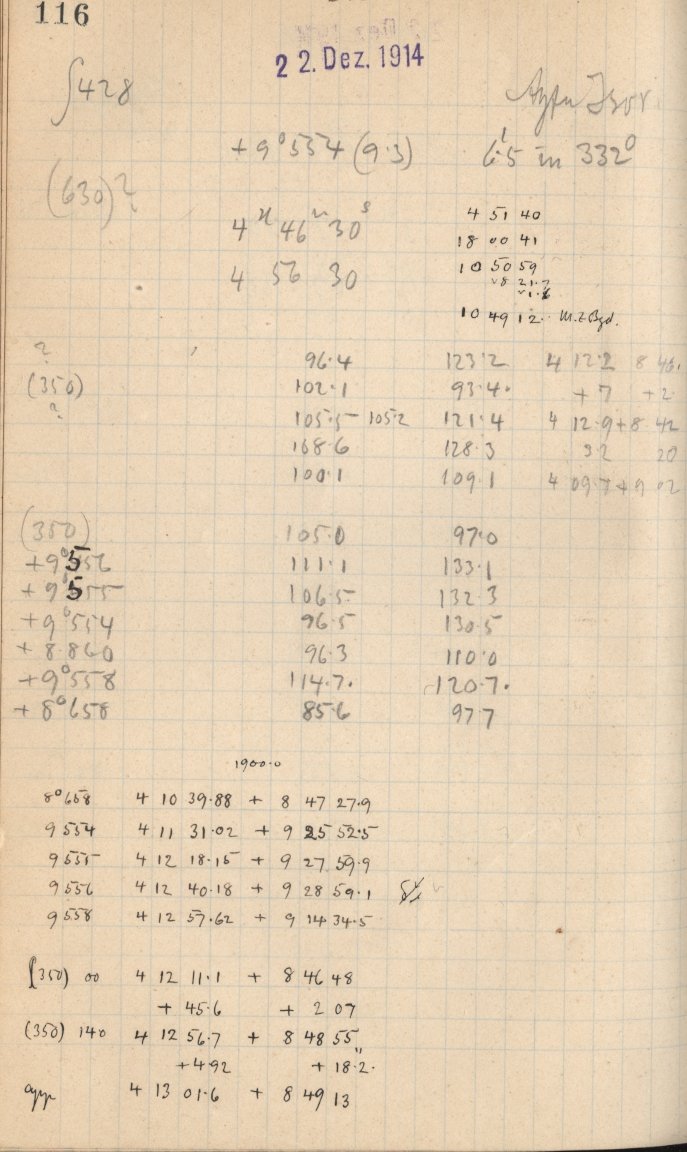 116
22. Dez. 1914
∫428
+9°554 (9.3) 6.'5 in 332°
(630)?
4ʰ 46ᵐ 30ˢ
4 56 30
4 51 40
18 00 41
10 50 59
10 49 12. M.Z.Bgd.
?
(350)
?
96.4 123.2 4 12.2 8 40.
102.1 93.4. +7 +2
105.5 - 105.2 121.4 4 12.9 + 8 42
108.6 128.3 32 20
100.1 109.1 4 09.7 + 9 02
(350) 105.0 97.0
+9°556 111.1 133.1
+9°555 106.5 132.3
+9°554 96.5 130.5
+8.860 96.3 110.0
+9°558 114.7. 120.7.
+8°658 85.6 97.7
1900.0
8°658 4 10 39.88 + 8 47 27.9
9 554 4 11 31.02 + 9 25 52.5
9 555 4 12 18.15 + 9 27 59.9
9 556 4 12 40.18 + 9 28 59.1
9 558 4 12 57.62 + 9 14 34.5
(350) 00 4 12 11.1 + 8 46 48
+ 45.6 + 2 07
(350) 140 4 12 56.7 + 8 48 55
+4.92 + 18".2.
app 4 13 01.6 + 8 49 13